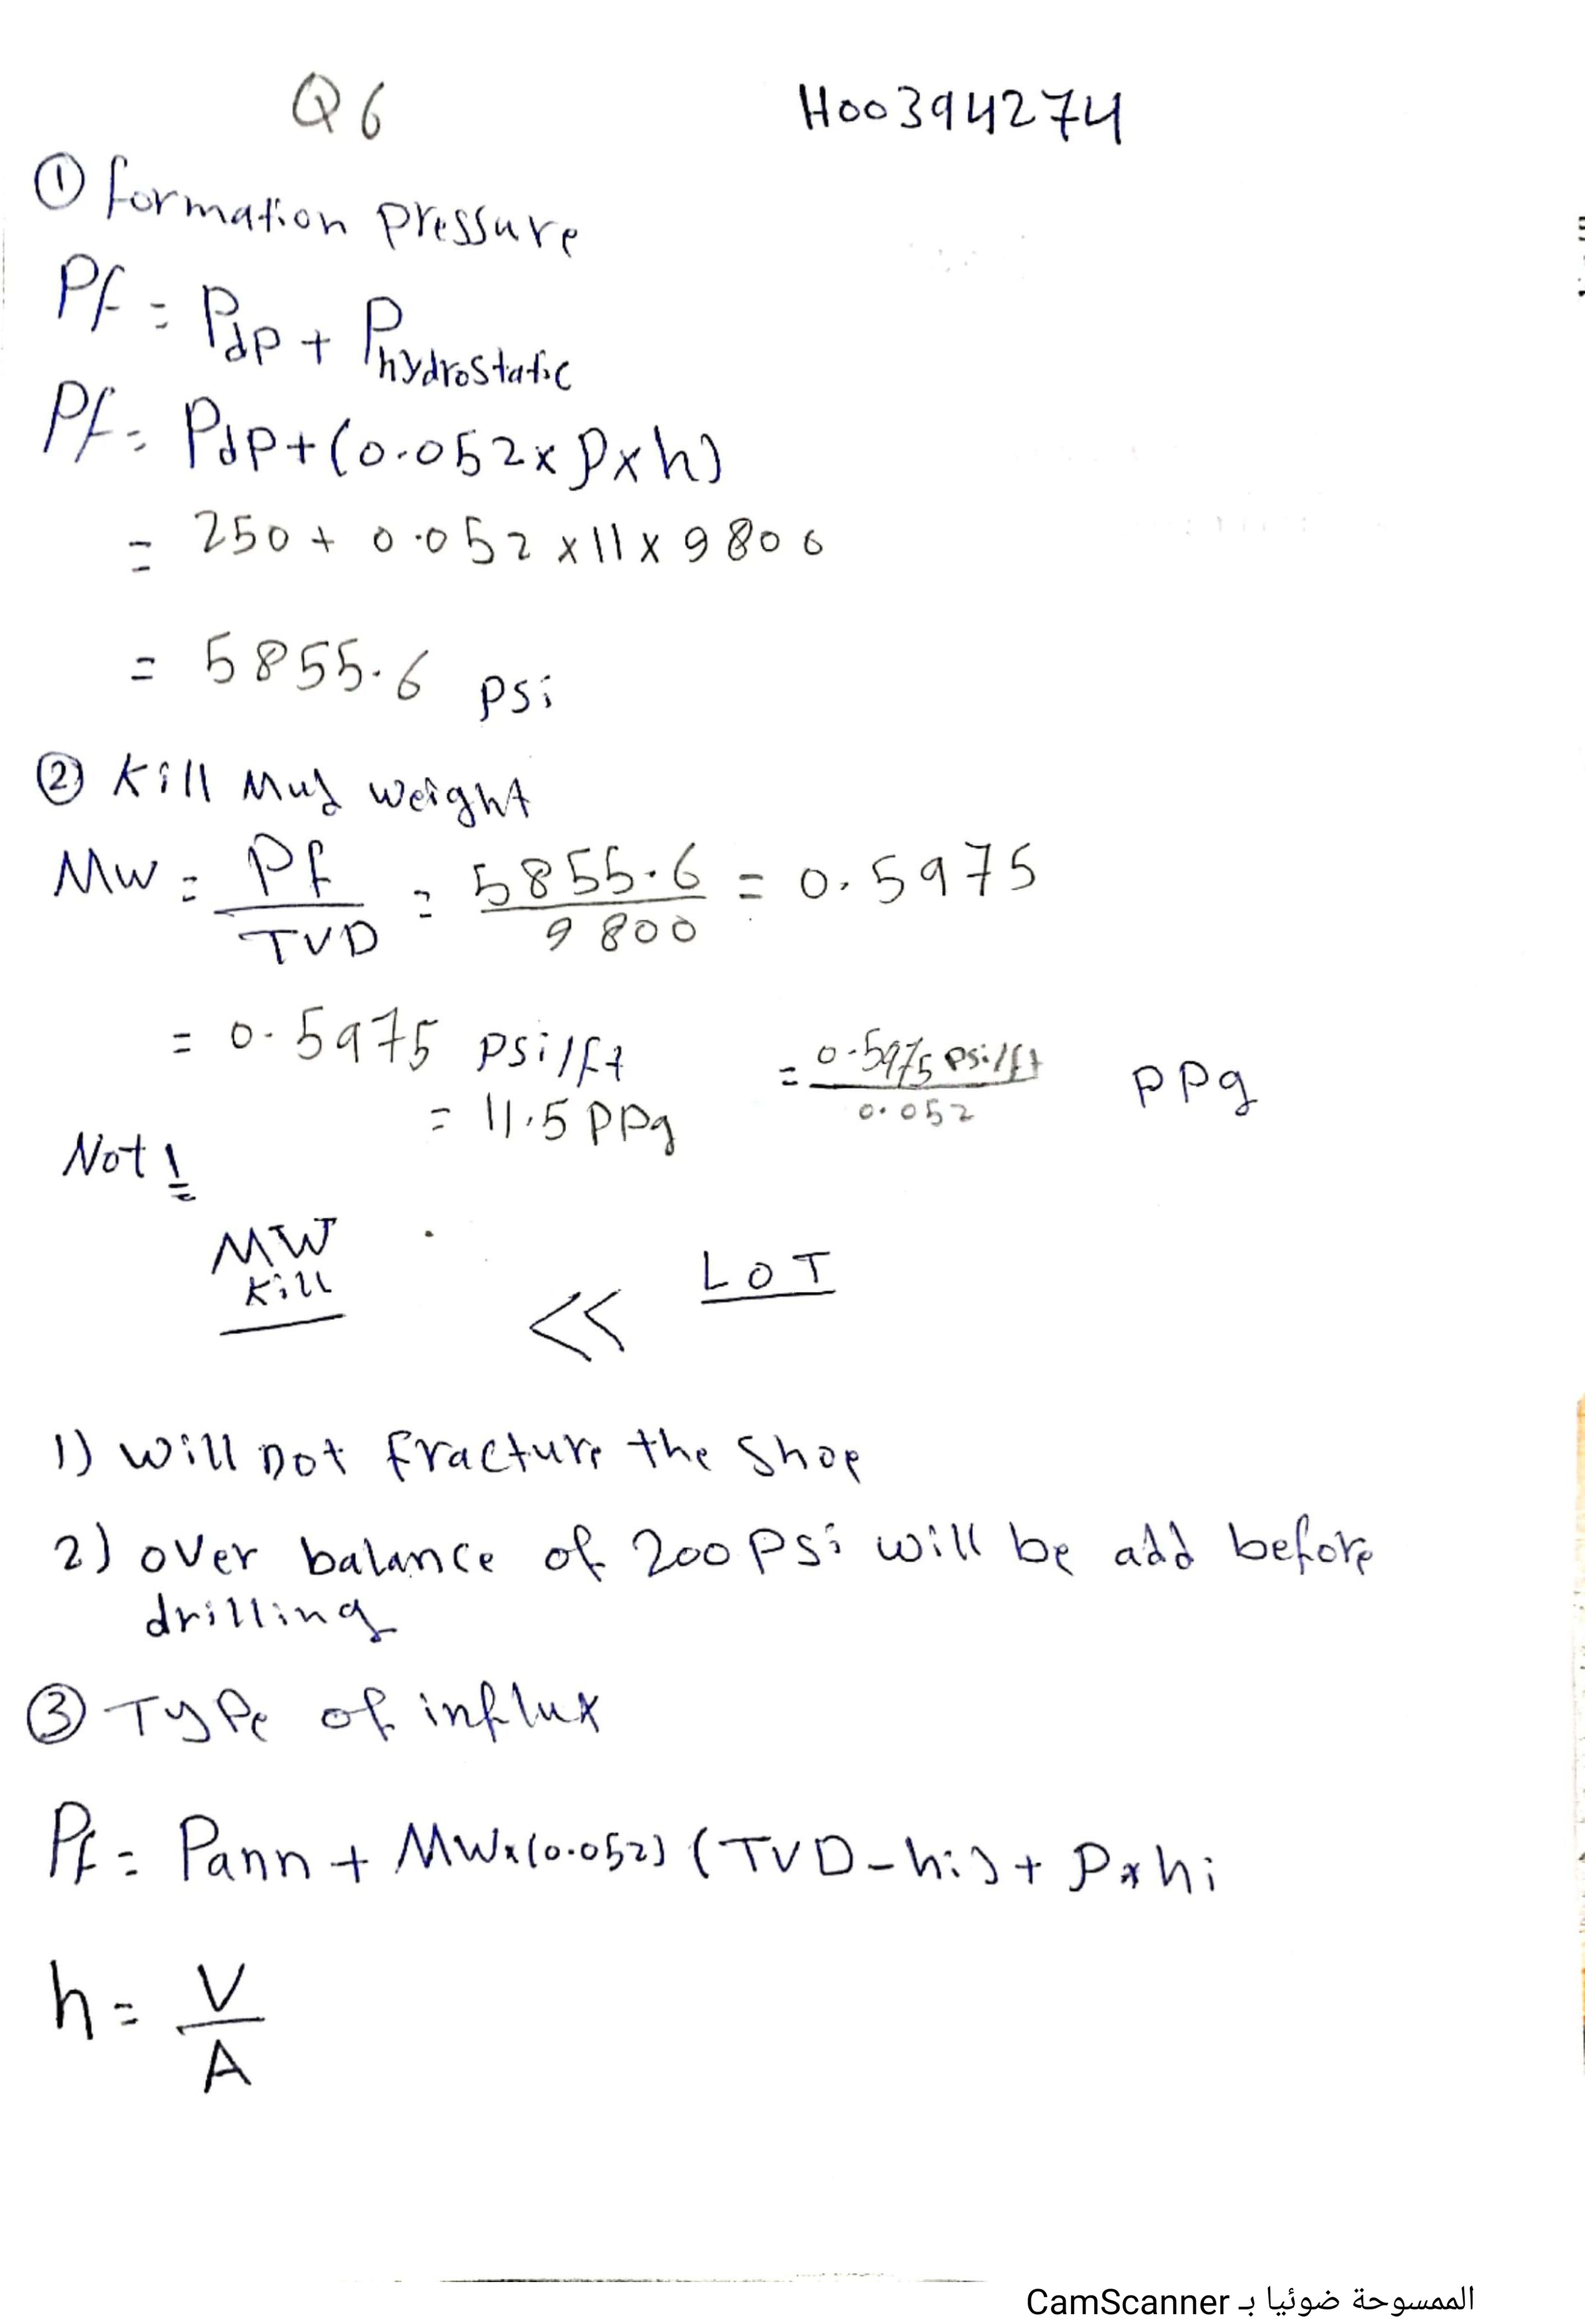 Q6 H00394274
① formation pressure
Pf = Pdp + Phydrostatic
Pf = Pdp + (0.052 x ρ x h)
= 250 + 0.052 x 11 x 9800
= 5855.6 psi
② Kill Mud weight
MW = Pf / TVD = 5855.6 / 9800 = 0.5975
= 0.5975 psi/ft = 0.5975 psi/ft / 0.052 ppg
= 11.5 ppg
Not!
MW Kill << LOT
1) will not fracture the shoe
2) over balance of 200 psi will be add before
drilling
③ Type of influx
Pf = Pann + MWx(0.052) (TVD - hi) + ρ x hi
h = V / A
الممسوحة ضوئيا بـ CamScanner